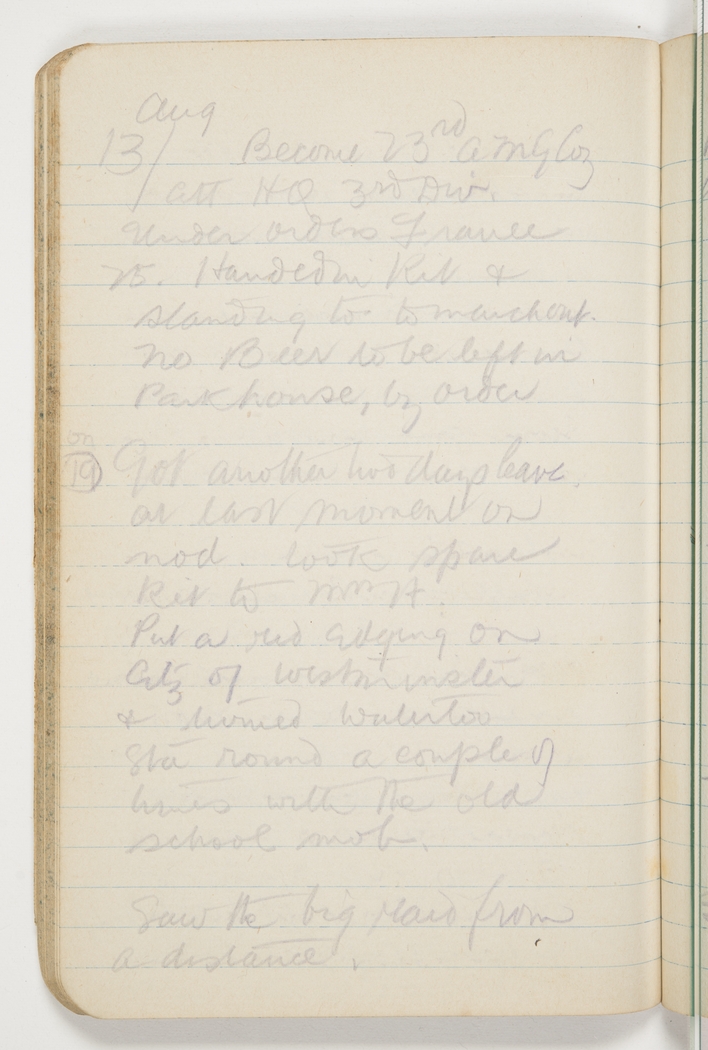 Aug
13/ Become 23rd AMG Coy
att HQ 3rd Div.
Under orders France
25. Handed in Kit &
standing to to march out.
No Beer to be left in
Parkhouse, by order
on
19) Got another two days leave.
at last moment on
nod. took spare
Kit to
Put a red edging on
City of Westminster
& turned Waterloo
Sta round a couple of
times with the old
school mob.
Saw the big raid from
a distance.